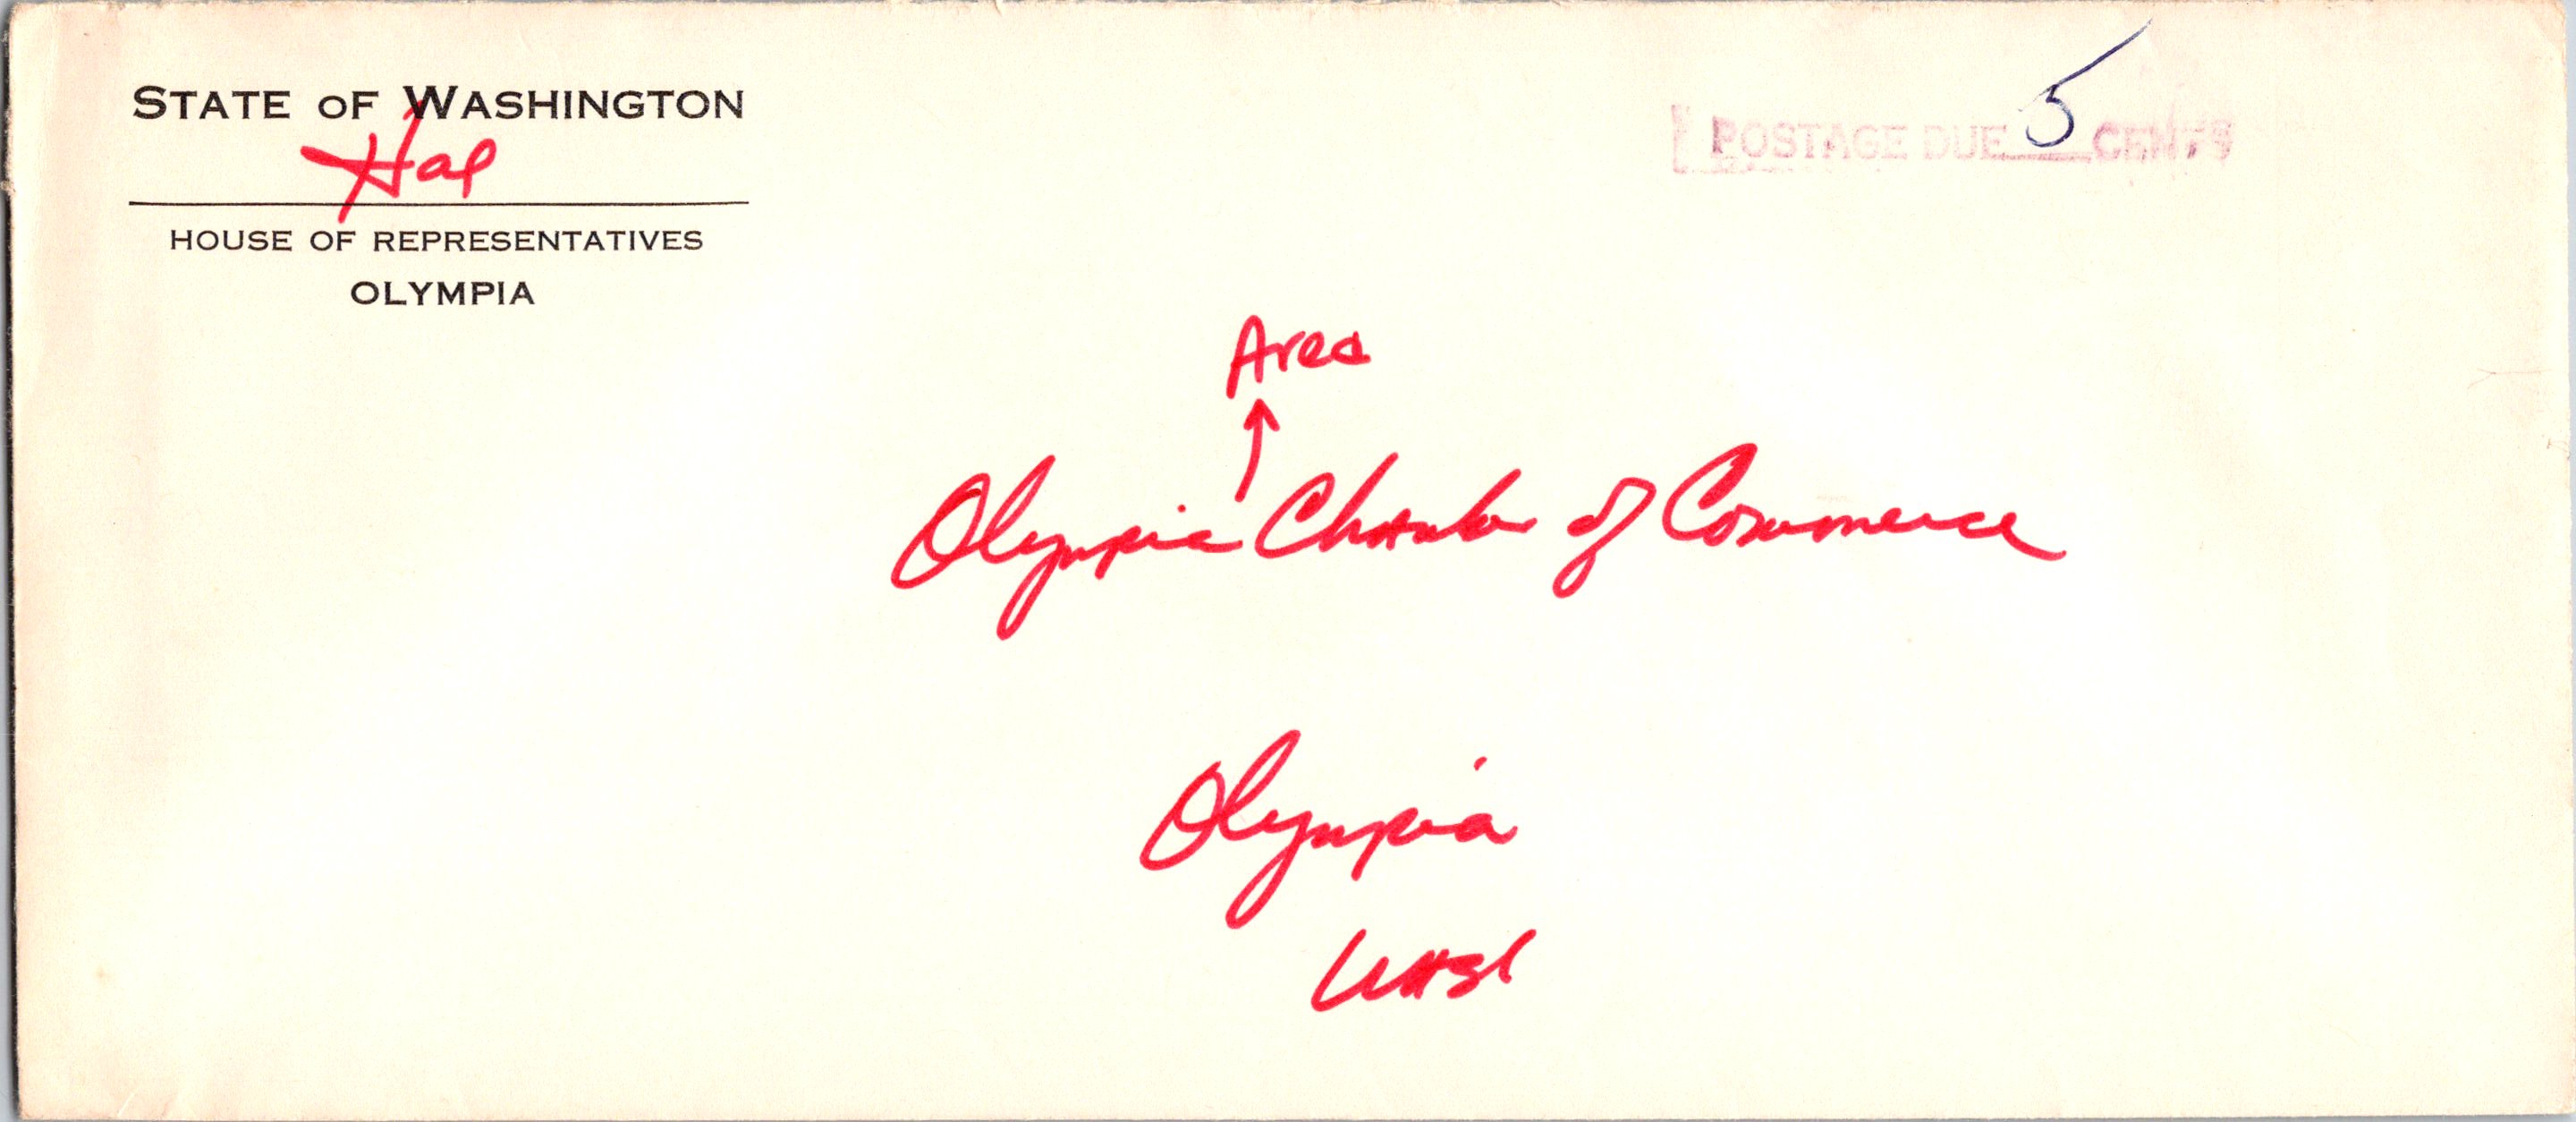 STATE OF WASHINGTON
Hal
HOUSE OF REPRESENTATIVES
OLYMPIA
POSTAGE DUE 5 CENTS
Area
Olympia Chamber of Commerce
Olympia
Wash